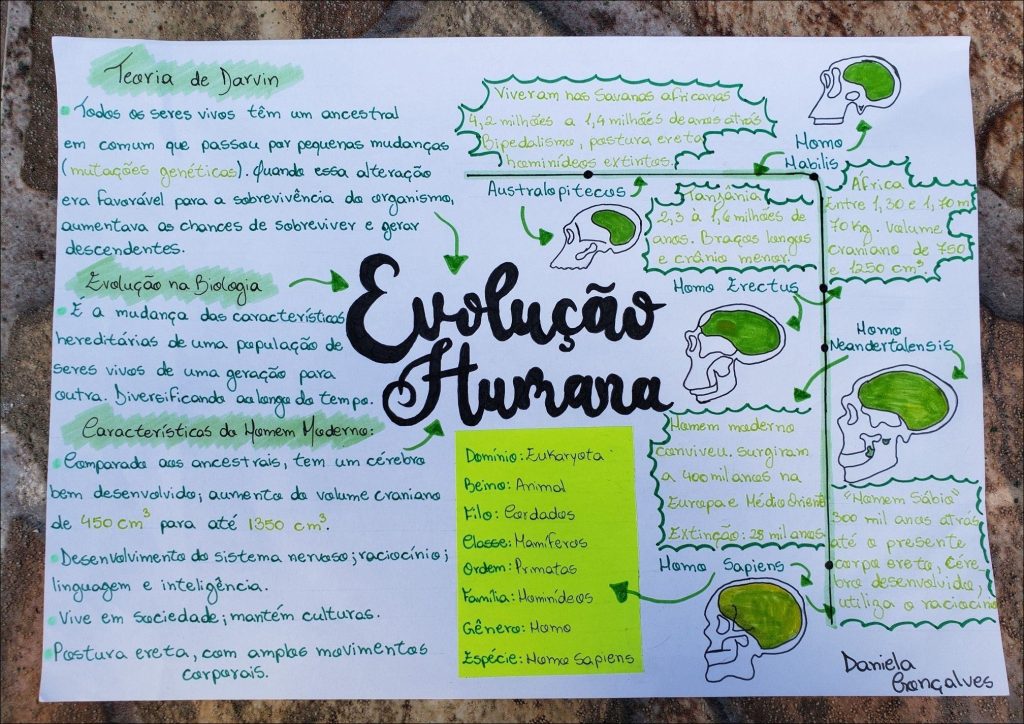 Teoria de Darvin
• Todos os seres vivos têm um ancestral
em comum que passou por pequenas mudanças
(mutações genéticas). Quando essa alteração
era favorável para a sobrevivência do organismo,
aumentava as chances de sobreviver e gerar
descendentes.
Evolução na Biologia
• É a mudança das características
hereditárias de uma população de
seres vivos de uma geração para
outra. Diversificando ao longo do tempo.
Características do Homem Moderno:
• Comparado aos ancestrais, tem um cérebro
bem desenvolvido; aumento do volume craniano
de 450 cm³ para até 1350 cm³.
• Desenvolvimento do sistema nervoso; raciocínio;
linguagem e inteligência.
• Vive em sociedade; mantém culturas.
• Postura ereta, com amplos movimentos
corporais.
Evolução
Humana
Domínio: Eukaryota
Reino: Animal
Filo: Cordados
Classe: Mamíferos
Ordem: Primatas
Família: Hominídeos
Gênero: Homo
Espécie: Homo Sapiens
Viveram nas Savanas africanas
4,2 milhões a 1,4 milhões de anos atrás
Bipedalismo, postura ereta
hominídeos extintos.
Australopitecus
Homo
Habilis
Tanzânia
2,3 à 1,6 milhões de
anos. Braços longos
e crânio menor.
Homo Erectus
África
Entre 1,30 e 1,70 m
70 kg. Volume
craniano de 750
e 1250 cm³.
Homo
Neandertalensis
Homem moderno
conviveu. Surgiram
a 400 mil anos na
Europa e Médio Oriente
Extinção: 28 mil anos
Homo Sapiens
"Homem Sábio"
300 mil anos atrás
até o presente
corpo ereto, cére-
bro desenvolvido,
utiliza o raciocíno
Daniela
Gonçalves